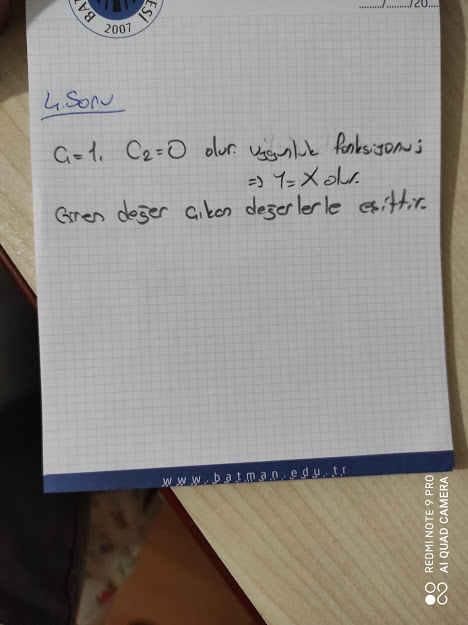 BAT
ESİ
2007
....../......../20....
4. Soru
C₁=1, C₂=0 olur. uygunluk fonksiyonu;
=> Y=X olur.
Giren değer çıkan değerlerle eşittir.
www.batman.edu.tr
REDMI NOTE 9 PRO
AI QUAD CAMERA